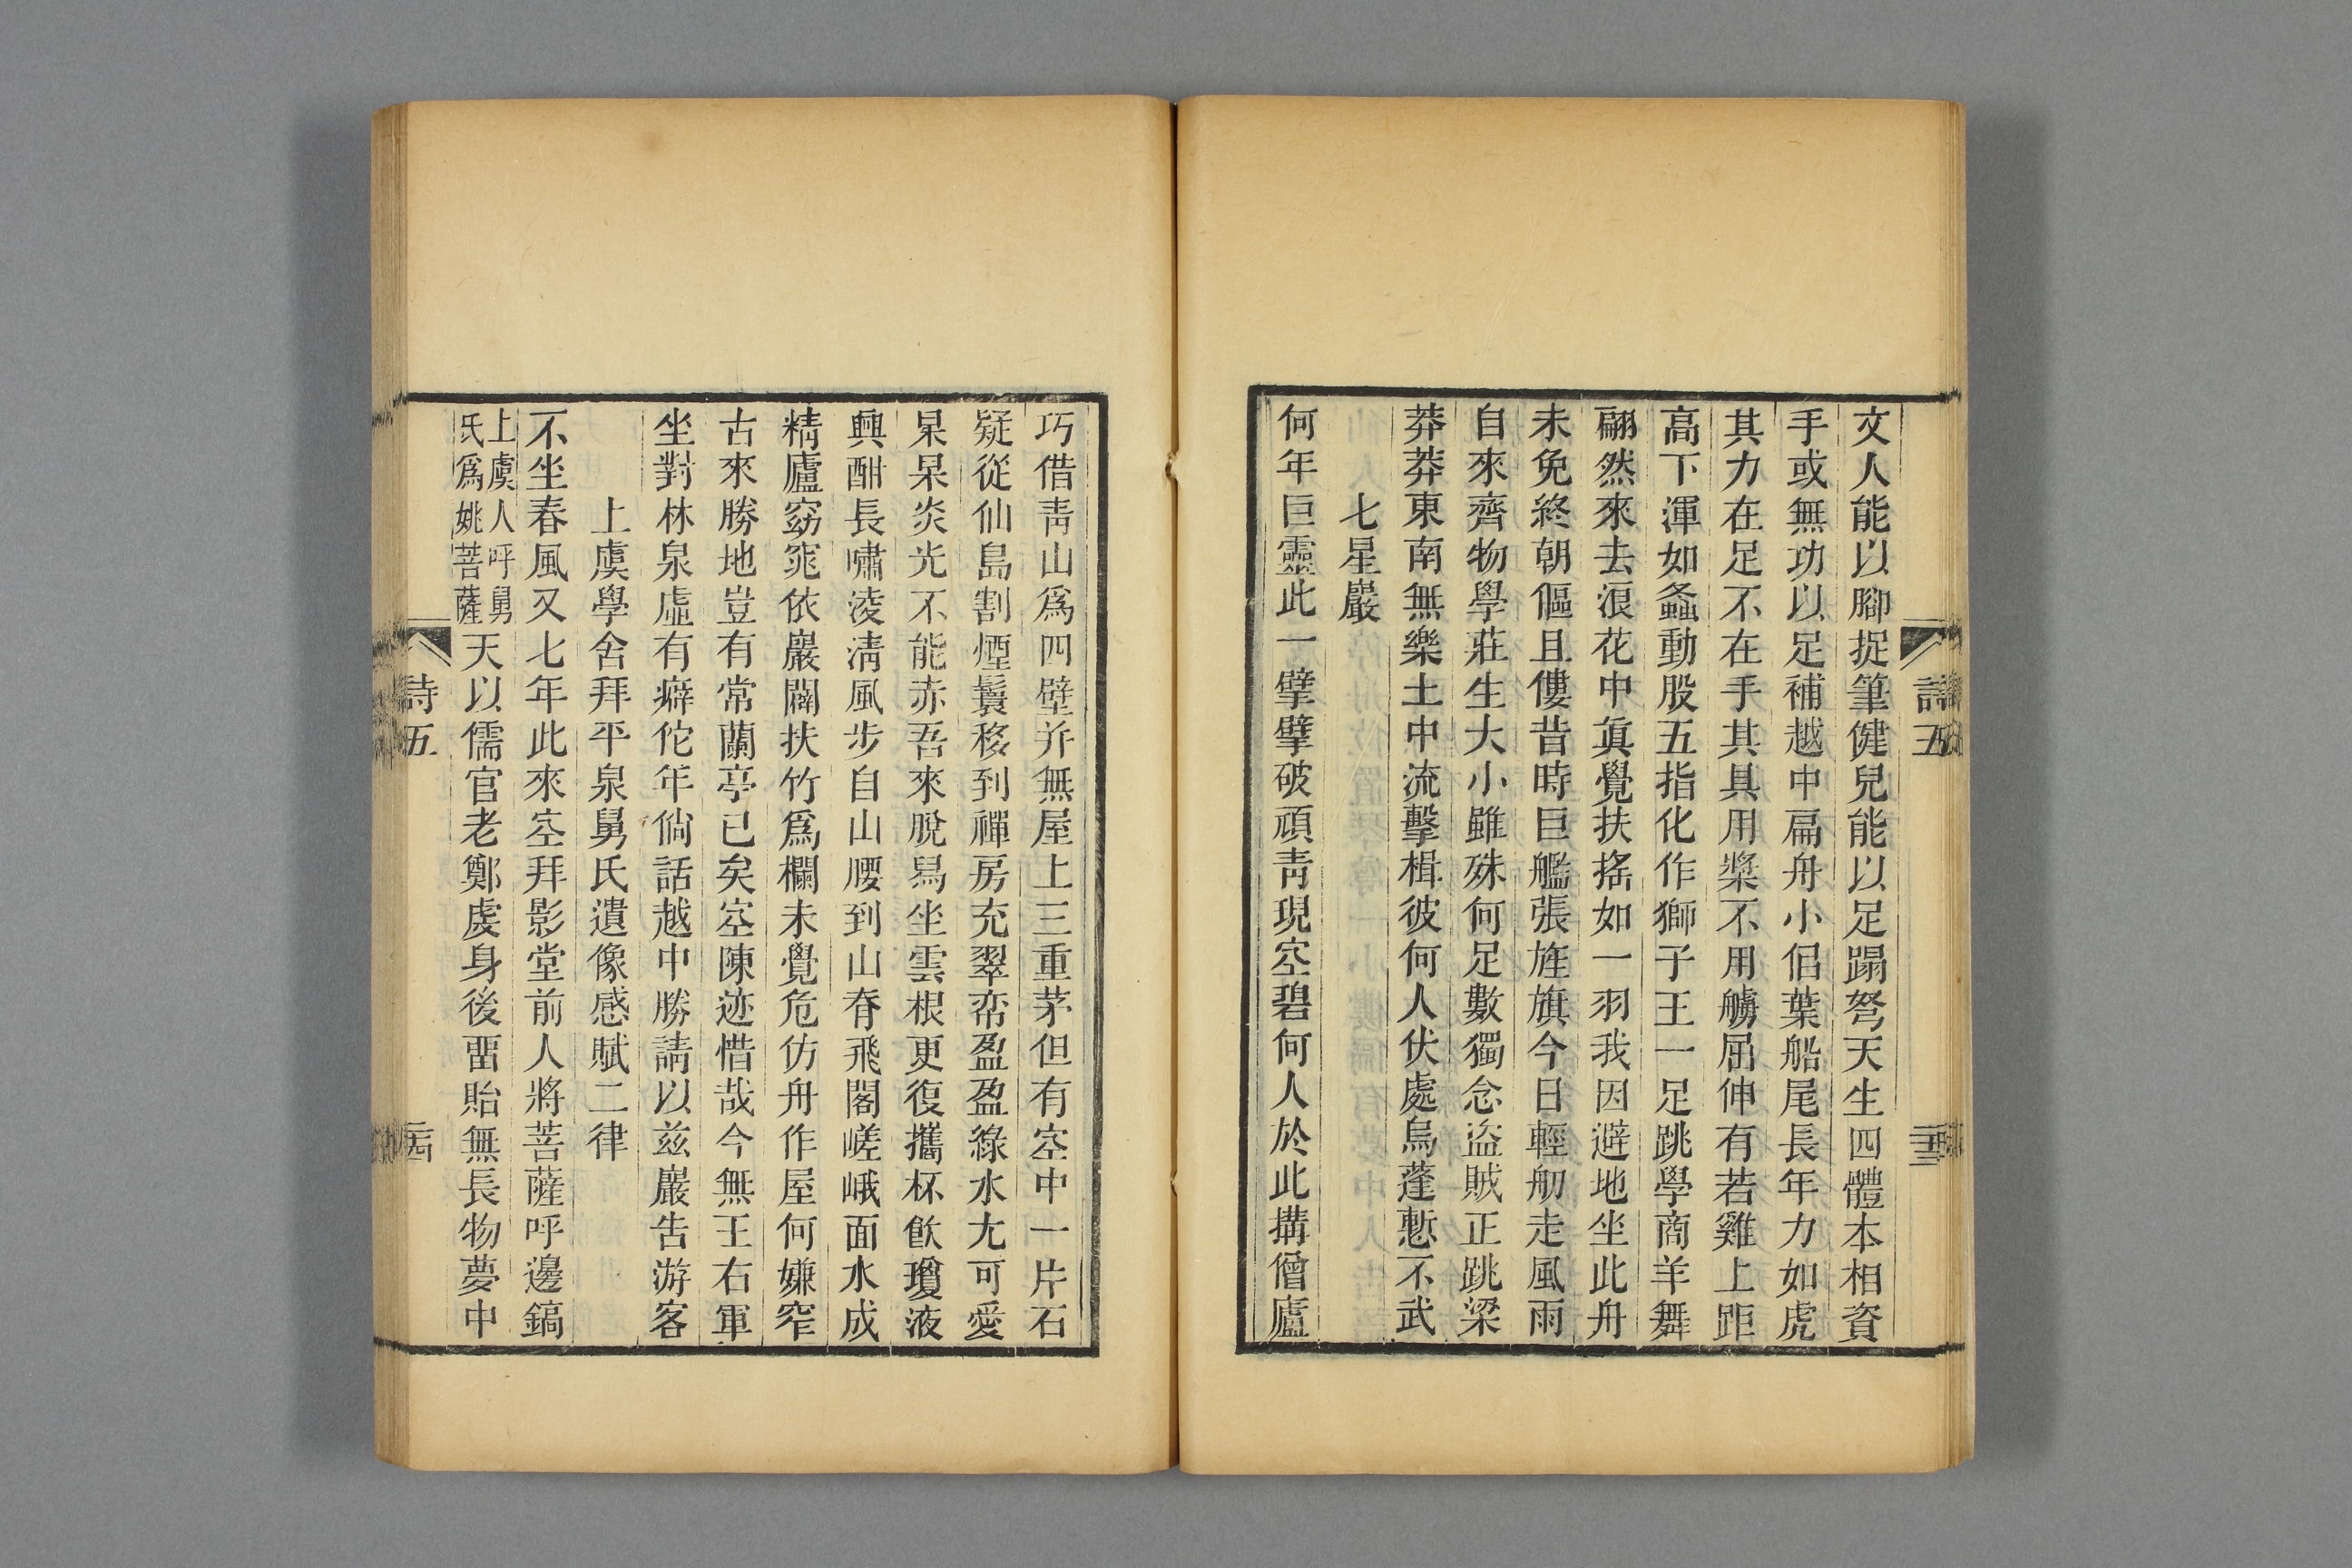 文人能以腳捉筆健兒能以足蹋弩天生四體本相資
手或無功以足補越中扁舟小侣葉船尾長年力如虎
其力在足不在手其具用槳不用艣屈伸有若雞上距
高下渾如螽動股五指化作獅子王一足跳學商羊舞
翩然來去浪花中眞覺扶搖如一羽我因避地坐此舟
未免終朝傴且僂昔時巨艦張旌旗今日輕舠走風雨
自來齊物學莊生大小雖殊何足數獨念盜賊正跳梁
莽莽東南無樂土中流擊楫彼何人伏處烏蓬慙不武
七星巖
何年巨靈此一擘擘破頑青現空碧何人於此搆僧廬
詩五
巧借青山爲四壁并無屋上三重茅但有空中一片石
疑從仙島割煙鬟移到禪房充翠帟盈盈綠水尢可愛
杲杲炎光不能赤吾來脫舄坐雲根更復攜杯飮瓊液
興酣長嘯淩清風步自山腰到山脊飛閣嵯峨面水成
精廬窈窕依巖闢扶竹爲欄未覺危仿舟作屋何嫌窄
古來勝地豈有常蘭亭已矣空陳迹惜哉今無王右軍
坐對林泉虛有癖佗年倘話越中勝請以兹巖告游客
上虞學舍拜平泉舅氏遺像感賦二律
不坐春風又七年此來空拜影堂前人將菩薩呼邊鎬
上虞人呼舅
氏爲姚菩薩
天以儒官老鄭虔身後畱貽無長物夢中
詩五